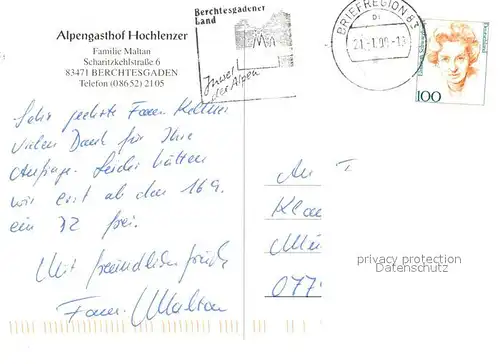 Alpengasthof Hochlenzer
Familie Maltan
Scharitzkehlstraße 6
83471 BERCHTESGADEN
Telefon (08652) 2105
Berchtesgadener
Land
Insel
der Alpen
BRIEFREGION 83
Deutschland
100
Sehr geehrte Frau
vielen Dank für Ihre
Anfrage. Leider hätten
wir erst ab dem 16.9.
ein DZ frei.
Mit freundlichen Grüßen
Fam. Maltan
An
Klau
Mü
077
privacy protection
Datenschutz